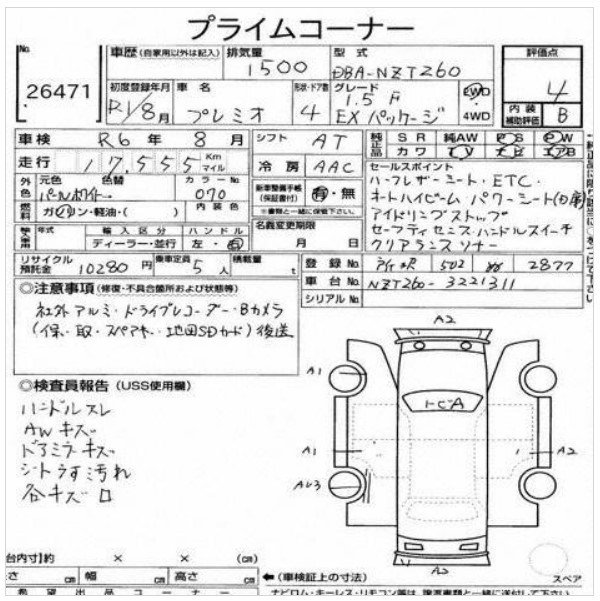 プライムコーナー
No.
26471
車歴(自家用以外は記入)
排気量
1500
型式
DBA-NZT260
評価点
4
初度登録年月
R1/8月
車名
プレミオ
形状・ドア数
4
グレード
1.5 F
EXパッケージ
2WD
4WD
内装
補助評価
B
車検
R6年8月
シフト
AT
純正品
SR
純AW
PS
PW
カワ
TV
ナビ
エアB
走行
17,555
Km
マイル
冷房
AAC
セールスポイント
ハーフレザーシート・ETC・
オートハイビーム パワーシート(D席)
アイドリングストップ
セーフティセンス・ハンドルスイッチ
クリアランスソナー
外色
元色
色替
カラーNo.
パールホワイト
070
新車整備手帳
(保証書付)
有・無
※書類と一緒に保管下さい。
燃料
ガソリン・軽油・( )
内装色
名義変更期限
月 日
年式
輸入区分
ハンドル
ディーラー・並行
左・右
リサイクル
預託金
10280円
乗車定員
5人
積載量
t
登録No.
502
2877
車台No.
NZT260-3221311
シリアルNo.
◎注意事項(修復・不具合箇所および状態等)
社外アルミ・ドライブレコーダー・Bカメラ
(保・取・スペアキー・地図SDカード)後送
◎検査員報告(USS使用欄)
ハンドルスレ
AWキズ
ドアミラーキズ
シートうす汚れ
各キズ
A2
A1
トビA
A1
A2
AU3
A2
スペア
台内寸)約 × × (cm)
さ cm 幅 cm 高さ cm
←(車検証上の寸法)
希望出品コーナー
ナビロム・キーレス・リモコン等は、譲渡書類と一緒に送付して下さい。